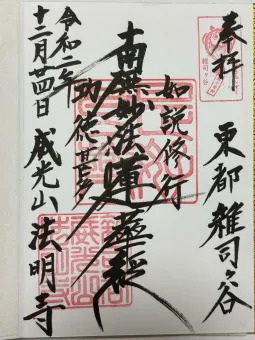 奉拝
雑司ヶ谷
東都 雑司ヶ谷
如説修行
南無妙法蓮華経
功徳甚多
令和二年
十二月廿四日 威光山 法明寺